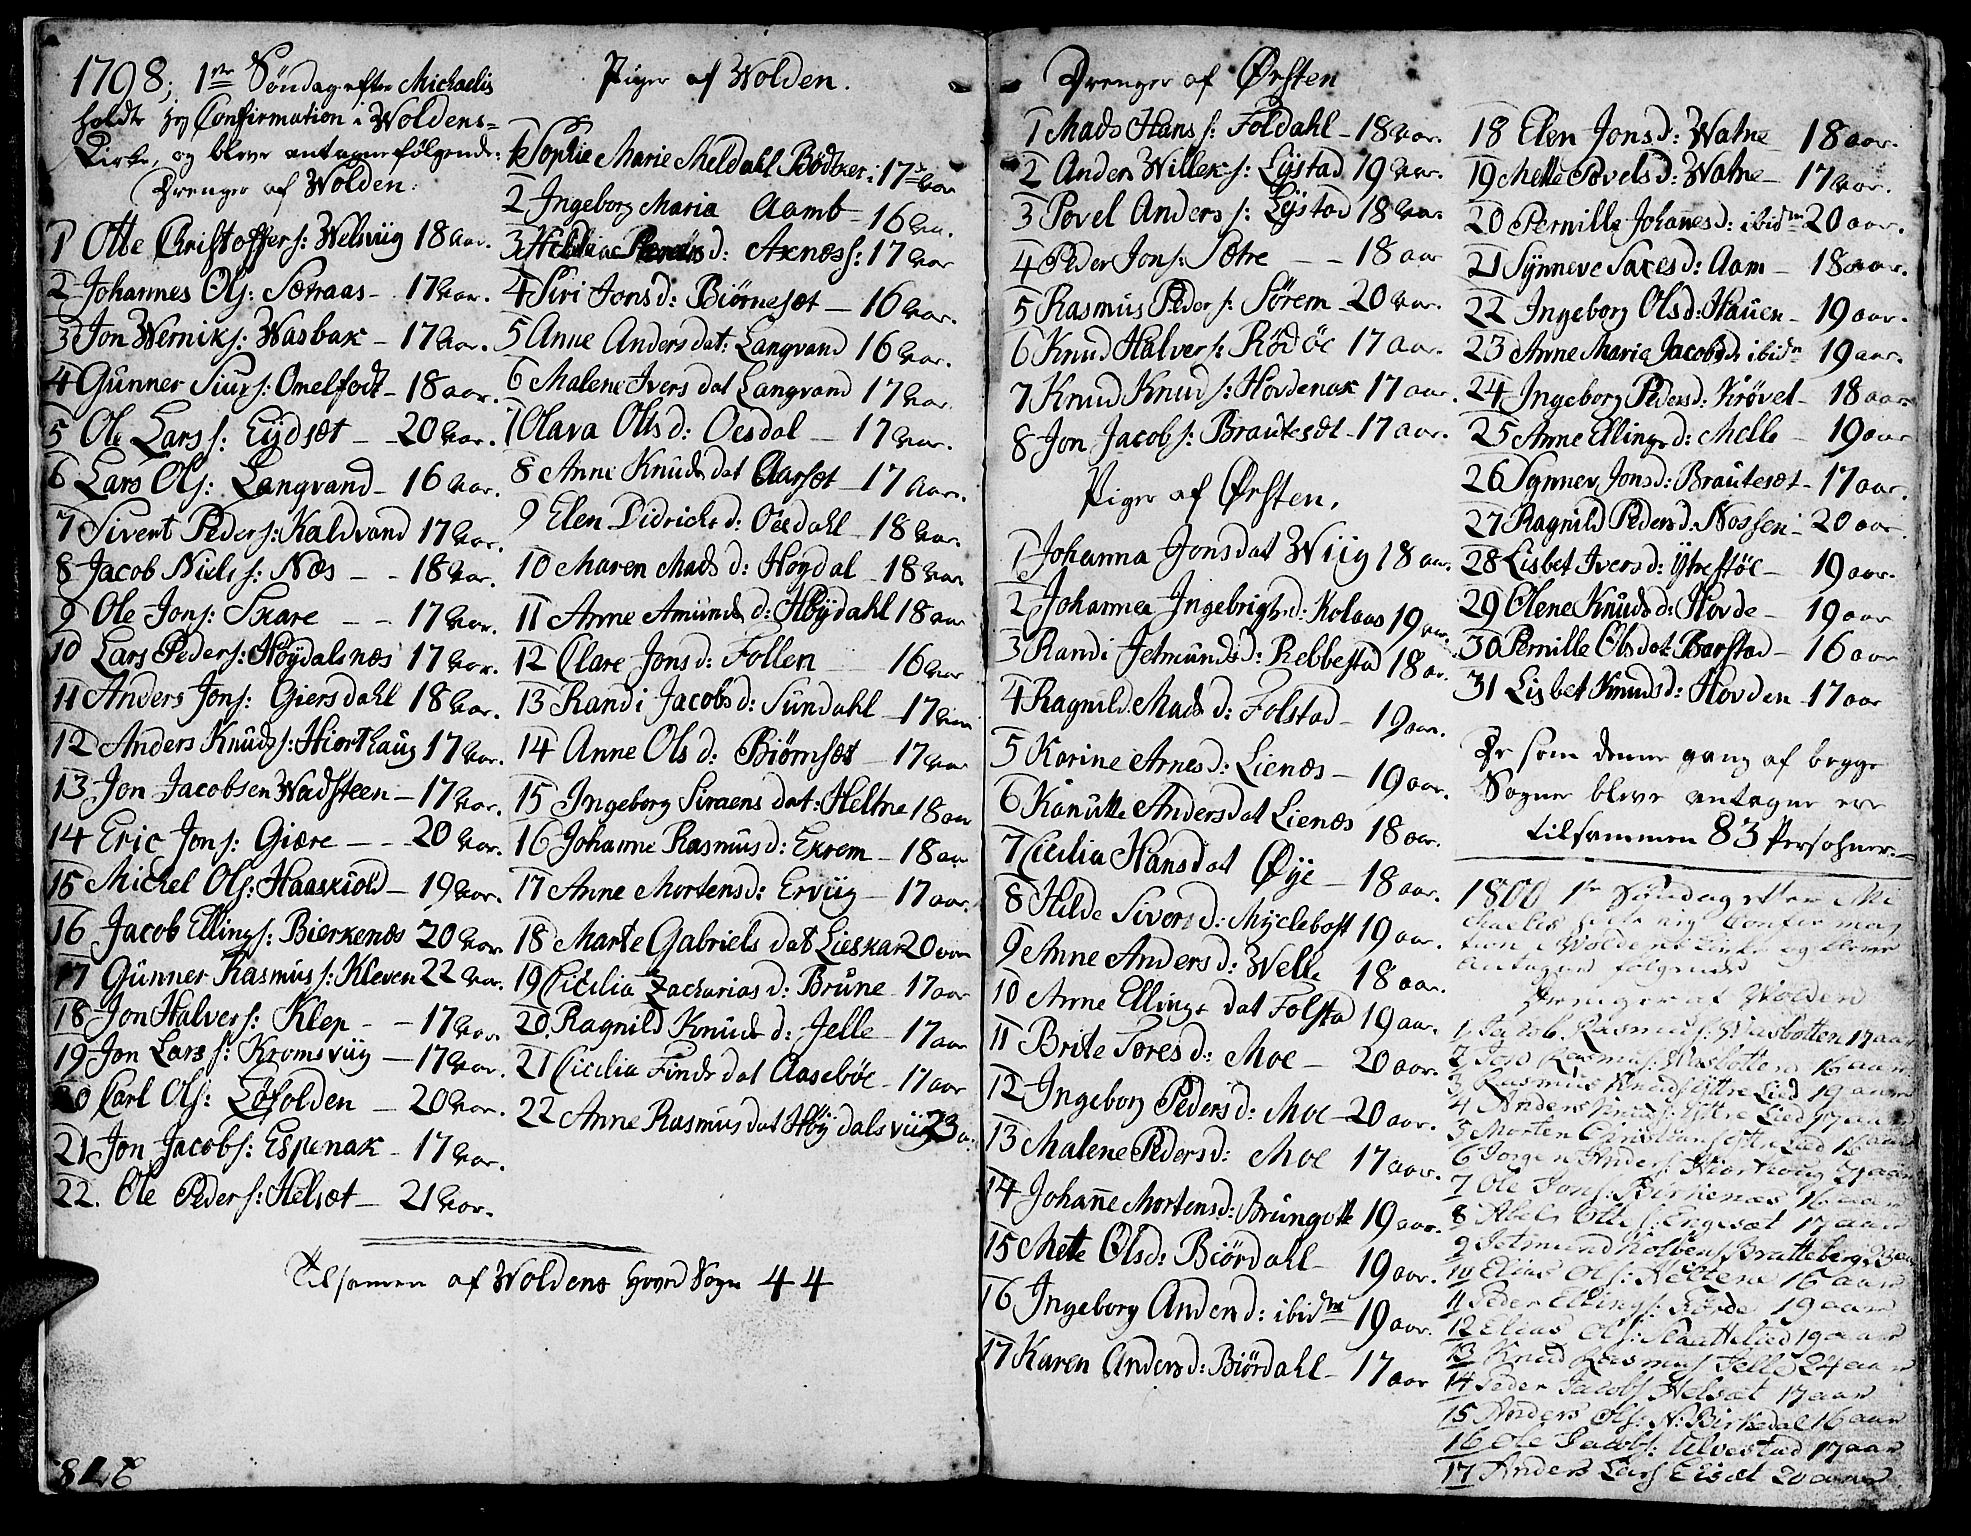 1798; 1ste Søndag efter Michaelis
holdt jeg Confirmation i Woldens-
Kirke, og bleve antagne følgende:
Drenger af Wolden:
1 Otte Christoffers: Welsviig 18 aar.
2 Johannes Ols: Sætraas - 17 aar.
3 Jon Werniks: Wasbak - 17 aar.
4 Gunner Siurs: Omelfodt - 18 aar.
5 Ole Lars s: Eydsæt - 20 aar.
6 Lars Ols: Langvand - 16 aar.
7 Sivert Peders: Kaldvand 17 aar.
8 Jacob Niels s: Næs - - 18 aar.
9 Ole Jons: Skare - - 17 aar.
10 Lars Peders: Høydalsnæs 17 aar.
11 Anders Jons: Giersdahl 18 aar.
12 Anders Knuds s: Hiorthaug 17 aar.
13 Jon Jacobsen Wadsteen - 17 aar.
14 Eric Jons: Giære - - 20 aar.
15 Michel Ols: Haaskiold - 19 aar.
16 Jacob Ellings: Bierkenæs 20 aar
17 Gunner Rasmus s: Kleven 22 aar.
18 Jon Halvers: Klep - - 17 aar.
19 Jon Lars s: Kromsviig - 17 aar.
20 Carl Ols: Løfolden - 20 aar.
21 Jon Jacobs: Espenak - 17 aar.
22. Ole Peders: Helsæt - 21 aar.
Piger af Wolden.
1 Sophie Marie Meldahl Bødtker: 17 aar
2 Ingeborg Maria Aamb - 16 aa.
3 d: Axnæss: 17 aar
4 Siri Jonsd: Biørnesæt - 16 aar.
5 Anne Andersdat: Langvand 16 aar.
6 Malene Ivers dat Langvand 17 aar
7 Olava Olsd: Oesdal - 17 aar.
8 Anne Knuds dat Aarsæt - 17 Aar.
9 Elen Didrichs d: Oesdahl - 18 aar.
10 Maren Mads d: Høydal - 18 aar
11 Anne Amunds d: Høydahl 18 aar
12 Clare Jonsd: Follen - 16 aar
13 Randi Jacobsd: Sundahl - 17 aar
14 Anne Ols d: Biørnsæt - 17 aar
15 Ingeborg dat: Heltne 18 aar
16 Johanne Rasmusd: Exrem - 18 aar
17 Anne Mortensd: Erviig - 17 aar.
18 Marte Gabriels dat Lieskar 20 aar
19 Cicilia Zacharias d: Brune - 17 aar
20. Ragnild Knuds d: Jelle - 17 aar
21 Cicilia Finds dat Aasebøe - 17 aar
22 Anne Rasmusdat Høydalsviig 23 a.
Tilsamen af Woldens Hoved Sogn 44
Drenger af Ørsten
1 Mads Hans s: Foldahl - 18 aar.
2 Anders Willeks s: Lystad 19 aar.
3 Povel Anders s: Lystad 18 aar
4 Peder Jons: Sætre - - 18 aar
5 Rasmus Peders: Sørem - 20 aar.
6 Knud Halvers: Rødøe 17 aar.
7 Knud Knuds: Hovdenak 17 aar.
8 Jon Jacobs: Brautesdt - 17 aar.
Piger af Ørsten.
1 Johanna Jonsdat Wiig 18 aar.
2 Johanna Ingebrigtsd: Kolaas 19 aar.
3 Randi Jetmundsd: Rebbestad 18 aar.
4 Ragnild Mads d: Folstad - 19 aar.
5 Karine Arnesd: Lienæs - 19 aar.
6 Kanutte Andersdat Lienæs 18 aar.
7 Cicilia Hansdat Øye - 18 aar.
8 Hilde Siversd: Myclebost 19 aar.
9 Anne Andersd: Welle 18 aar.
10 Anne Ellings dat Folstad 19 aar.
11 Brite Sores d: Moe - 20 aar.
12 Ingeborg Pedersd: Moe - 20 aar.
13 Malene Pedersd: Moe 17 aar.
14 Johanne Mortensd: Brungott 19 aar.
15 Mette Olsd: Biørdahl - 19 aar.
16 Ingeborg Andend: ibidm 19 aar.
17 Karen Andersd: Biørdahl - 17 aar
18 Elen Jonsd: Watne - 18 aar.
19 Mette Povelsd: Watne - 17 aar.
20 Pernille Johannesd: ibidm 20 aar.
21 Synneve Saxesd: Aam - 18 aar.
22 Ingeborg Olsd: Hauen - 19 aar.
23 Anne Maria Jacobsd: ibidm 19 aar.
24 Ingeborg Pedersd: Krøvel - 18 aar
25 Anne Ellingsd: Melle - 19 aar
26 Synnev Jonsd: Brautesæt - 17 aar.
27 Ragnild Pedersd: Nossen - 20 aar
28 Lisbet Iversd: Ytrestøl - 19 aar.
29 Olene Knudsd: Hovde - 19 aar
30 Pernille Olsdat: Barstad - 16 aar
31 Lisbet Knudsd: Hovden - 17 aar
De som denne gang af begge
Sogner bleve antagne ere
tilsammen 83 Persohner.
1800 1ste Søndag efter Mi
chaelis holte ieg Confirma
tion i Woldens Kirke og bleve
antagne følgende
Drenger af Wolden
1 Jacob Rasmus s: Wiasbotten 17 aar
2 Jens Rasmuss: Wasbotten 16 aar
3 Rasmus Knuds Ytre Lied 19 aar
4 Anders Knuds: Yttre Lied 17 aar
5 Morten Christians Lied 16 aar
6 Jørgen Anders: Hiorthoug 21 aar
7 Ole Jons: Birkenæs 16 aar
8 Abel Ottes: Engesæt 17 aar
9 Jetmund Kolbens Bratteberg 23 aar
10 Elias Ols: Heltene 16 aar
11 Peder Ellings: Førde 19 aar
12 Elias Ols: Slaattelied 19 aar
13 Knud Rasmus Jelle 24 aar
14 Peder Jacobs Helsæt 17 aar
15 Anders Ols: N: Birkedal 16 aar
16 Ole Jacobs: Ulvestad 17 aar
17 Anders Lars Eisæt 20 aar